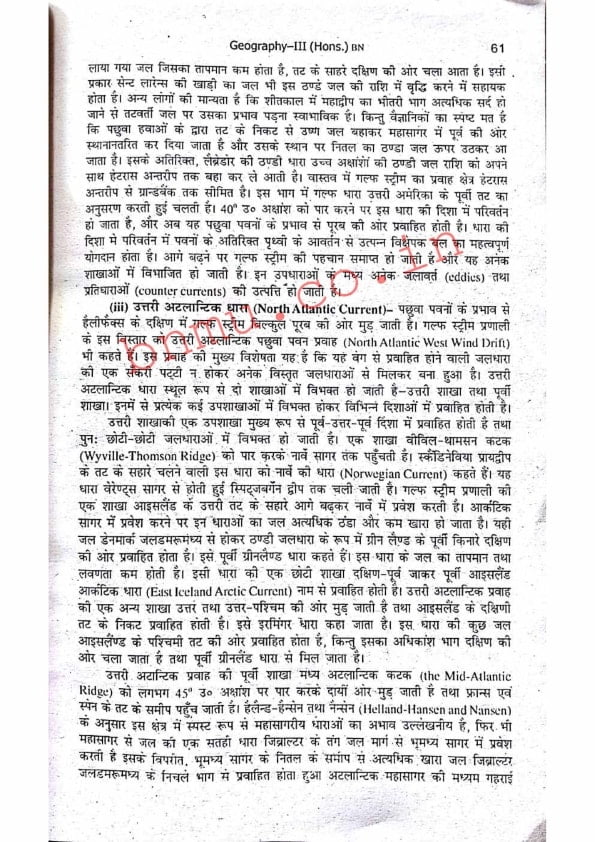 Geography–III (Hons.) BN 61
लाया गया जल जिसका तापमान कम होता है, तट के सहारे दक्षिण की ओर चला आता है। इसी
प्रकार सेन्ट लारेन्स की खाड़ी का जल भी इस ठण्डे जल की राशि में वृद्धि करने में सहायक
होता है। अन्य लोगों की मान्यता है कि शीतकाल में महाद्वीप का भीतरी भाग अत्यधिक सर्द हो
जाने से तटवर्ती जल पर उसका प्रभाव पड़ना स्वाभाविक है। किन्तु वैज्ञानिकों का स्पष्ट मत है
कि पछुवा हवाओं के द्वारा तट के निकट से उष्ण जल बहाकर महासागर में पूर्व की ओर
स्थानान्तरित कर दिया जाता है और उसके स्थान पर नितल का ठण्डा जल ऊपर उठकर आ
जाता है। इसके अतिरिक्त, लैब्रेडोर की ठण्डी धारा उच्च अक्षांशों की ठण्डी जल राशि को अपने
साथ हेटरास अन्तरीप तक बहा कर ले आती है। वास्तव में गल्फ स्ट्रीम का प्रवाह क्षेत्र हेटरास
अन्तरीप से ग्रान्डबैंक तक सीमित है। इस भाग में गल्फ धारा उत्तरी अमेरिका के पूर्वी तट का
अनुसरण करती हुई चलती है। 40° उ० अक्षांश को पार करने पर इस धारा की दिशा में परिवर्तन
हो जाता है, और अब यह पछुवा पवनों के प्रभाव से पूरब की ओर प्रवाहित होती है। धारा की
दिशा मे परिवर्तन में पवनों के अतिरिक्त पृथ्वी के आवर्तन से उत्पन्न विक्षेपक बल का महत्वपूर्ण
योगदान होता है। आगे बढ़ने पर गल्फ स्ट्रीम की पहचान समाप्त हो जाती है और यह अनेक
शाखाओं में विभाजित हो जाती है। इन उपधाराओं के मध्य अनेक जलावर्त (eddies) तथा
प्रतिधाराओं (counter currents) की उत्पत्ति हो जाती है।
(iii) उत्तरी अटलान्टिक धारा (North Atlantic Current)– पछुवा पवनों के प्रभाव से
हैलीफैक्स के दक्षिण में गल्फ स्ट्रीम बिल्कुल पूरब की ओर मुड़ जाती है। गल्फ स्ट्रीम प्रणाली
के इस विस्तार को उत्तरी अटलान्टिक पछुवा पवन प्रवाह (North Atlantic West Wind Drift)
भी कहते हैं। इस प्रवाह की मुख्य विशेषता यह है कि यह वेग से प्रवाहित होने वाली जलधारा
की एक सँकरी पट्टी न होकर अनेक विस्तृत जलधाराओं से मिलकर बना हुआ है। उत्तरी
अटलान्टिक धारा स्थूल रूप से दो शाखाओं में विभक्त हो जाती है–उत्तरी शाखा तथा पूर्वी
शाखा। इनमें से प्रत्येक कई उपशाखाओं में विभक्त होकर विभिन्न दिशाओं में प्रवाहित होती है।
उत्तरी शाखाकी एक उपशाखा मुख्य रूप से पूर्व-उत्तर-पूर्व दिशा में प्रवाहित होती है तथा
पुनः छोटी-छोटी जलधाराओं में विभक्त हो जाती है। एक शाखा वीविल-थामसन कटक
(Wyville-Thomson Ridge) को पार करके नार्वे सागर तक पहुँचती है। स्कैंडिनेविया प्रायद्वीप
के तट के सहारे चलने वाली इस धारा को नार्वे की धारा (Norwegian Current) कहते हैं। यह
धारा वेरेण्ट्स सागर से होती हुई स्पिट्जबर्गेन द्वीप तक चली जाती है। गल्फ स्ट्रीम प्रणाली की
एक शाखा आइसलैंड के उत्तरी तट के सहारे आगे बढ़कर नार्वे में प्रवेश करती है। आर्कटिक
सागर में प्रवेश करने पर इन धाराओं का जल अत्यधिक ठंडा और कम खारा हो जाता है। यही
जल डेनमार्क जलडमरूमंध्य से होकर ठण्डी जलधारा के रूप में ग्रीन लैण्ड के पूर्वी किनारे दक्षिण
की ओर प्रवाहित होता है। इसे पूर्वी ग्रीनलैण्ड धारा कहते हैं। इस धारा के जल का तापमान तथा
लवणता कम होती है। इसी धारा की एक छोटी शाखा दक्षिण-पूर्व जाकर पूर्वी आइसलैंड
आर्कटिक धारा (East Iceland Arctic Current) नाम से प्रवाहित होती है। उत्तरी अटलान्टिक प्रवाह
की एक अन्य शाखा उत्तर तथा उत्तर-पश्चिम की ओर मुड़ जाती है तथा आइसलैंड के दक्षिणी
तट के निकट प्रवाहित होती है। इसे इरमिंगर धारा कहा जाता है। इस धारा की कुछ जल
आइसलैण्ड के पश्चिमी तट की ओर प्रवाहित होता है, किन्तु इसका अधिकांश भाग दक्षिण की
ओर चला जाता है तथा पूर्वी ग्रीनलैंड धारा से मिल जाता है।
उत्तरी अटान्टिक प्रवाह की पूर्वी शाखा मध्य अटलान्टिक कटक (the Mid-Atlantic
Ridge) को लगभग 45° उ० अक्षांश पर पार करके दायीं ओर मुड़ जाती है तथा फ्रान्स एवं
स्पेन के तट के समीप पहुँच जाती है। हैलैन्ड-हैन्सेन तथा नैन्सेन (Helland-Hansen and Nansen)
के अनुसार इस क्षेत्र में स्पस्ट रूप से महासागरीय धाराओं का अभाव उल्लेखनीय है, फिर भी
महासागर से जल की एक सतही धारा जिब्राल्टर के तंग जल मार्ग से भूमध्य सागर में प्रवेश
करती है इसके विपरीत, भूमध्य सागर के नितल के समीप से अत्यधिक खारा जल जिब्राल्टर
जलडमरूमध्य के निचले भाग से प्रवाहित होता हुआ अटलान्टिक महासागर की मध्यम गहराई
bnmu.co.in